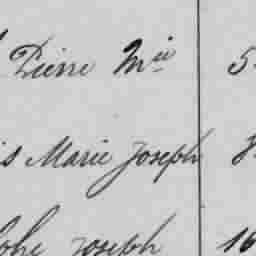 Pierre M^ie 5
is Marie Joseph 8
lphe joseph 16